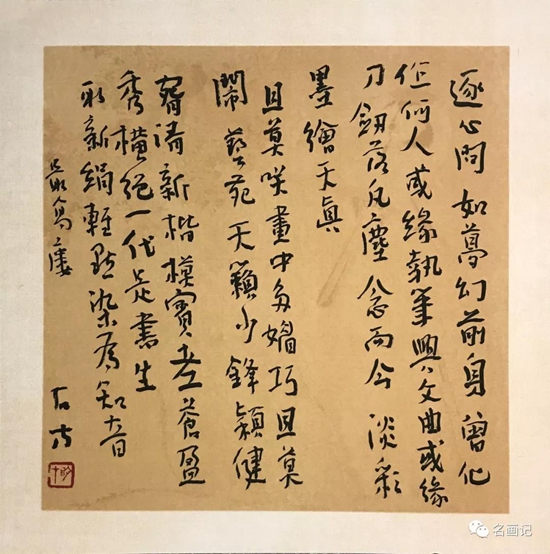 逐心問如夢幻前身曾化
作何人或緣執筆興文曲或緣
刀劍落凡塵念而今淡彩
墨繪天真
且莫咲畫中多媚巧且莫
鬧藝苑天籟少鋒穎健
齊諸新楷模寶老蒼盈
秀橫絕一代是書生
取新絹輕點染為知音
名画记